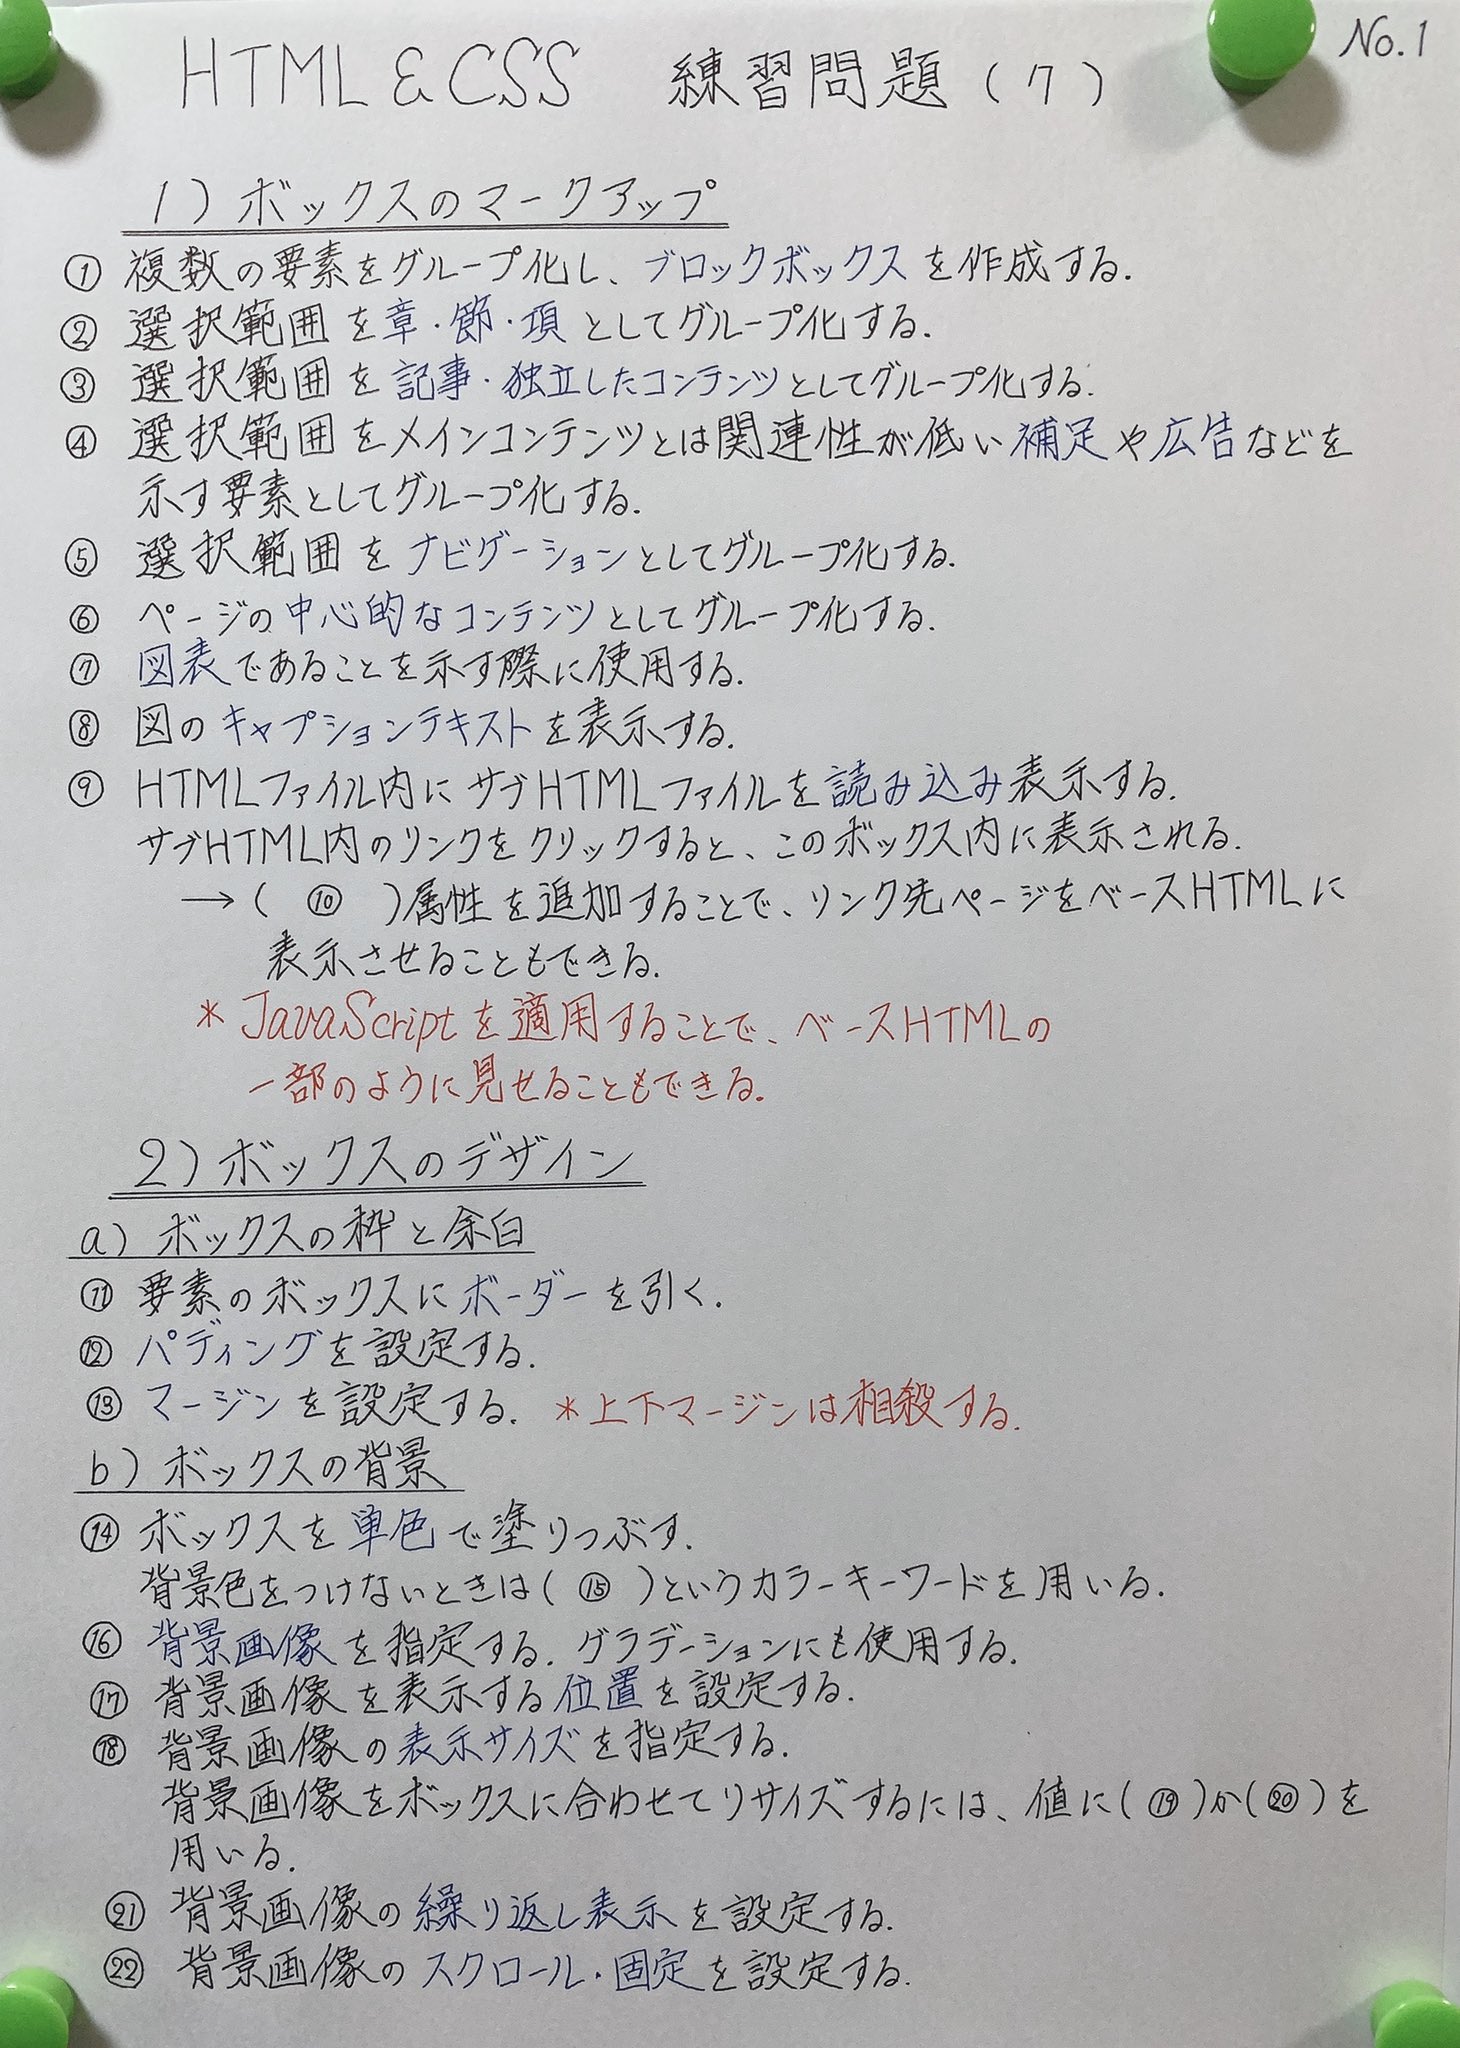 No.1
HTML&CSS 練習問題(7)
1)ボックスのマークアップ
① 複数の要素をグループ化し、ブロックボックスを作成する.
② 選択範囲を章・節・項としてグループ化する.
③ 選択範囲を記事・独立したコンテンツとしてグループ化する.
④ 選択範囲をメインコンテンツとは関連性が低い補足や広告などを
示す要素としてグループ化する.
⑤ 選択範囲をナビゲーションとしてグループ化する.
⑥ ページの中心的なコンテンツとしてグループ化する.
⑦ 図表であることを示す際に使用する.
⑧ 図のキャプションテキストを表示する.
⑨ HTMLファイル内にサブHTMLファイルを読み込み表示する.
サブHTML内のリンクをクリックすると、このボックス内に表示される.
→( ⑩ )属性を追加することで、リンク先ページをベースHTMLに
表示させることもできる.
*JavaScriptを適用することで、ベースHTMLの
一部のように見せることもできる.
2)ボックスのデザイン
a)ボックスの枠と余白
⑪ 要素のボックスにボーダーを引く.
⑫ パディングを設定する.
⑬ マージンを設定する. *上下マージンは相殺する.
b)ボックスの背景
⑭ ボックスを単色で塗りつぶす.
背景色をつけないときは( ⑮ )というカラーキーワードを用いる.
⑯ 背景画像を指定する. グラデーションにも使用する.
⑰ 背景画像を表示する位置を設定する.
⑱ 背景画像の表示サイズを指定する.
背景画像をボックスに合わせてリサイズするには、値に(⑲)か(⑳)を
用いる.
㉑ 背景画像の繰り返し表示を設定する.
㉒ 背景画像のスクロール・固定を設定する.